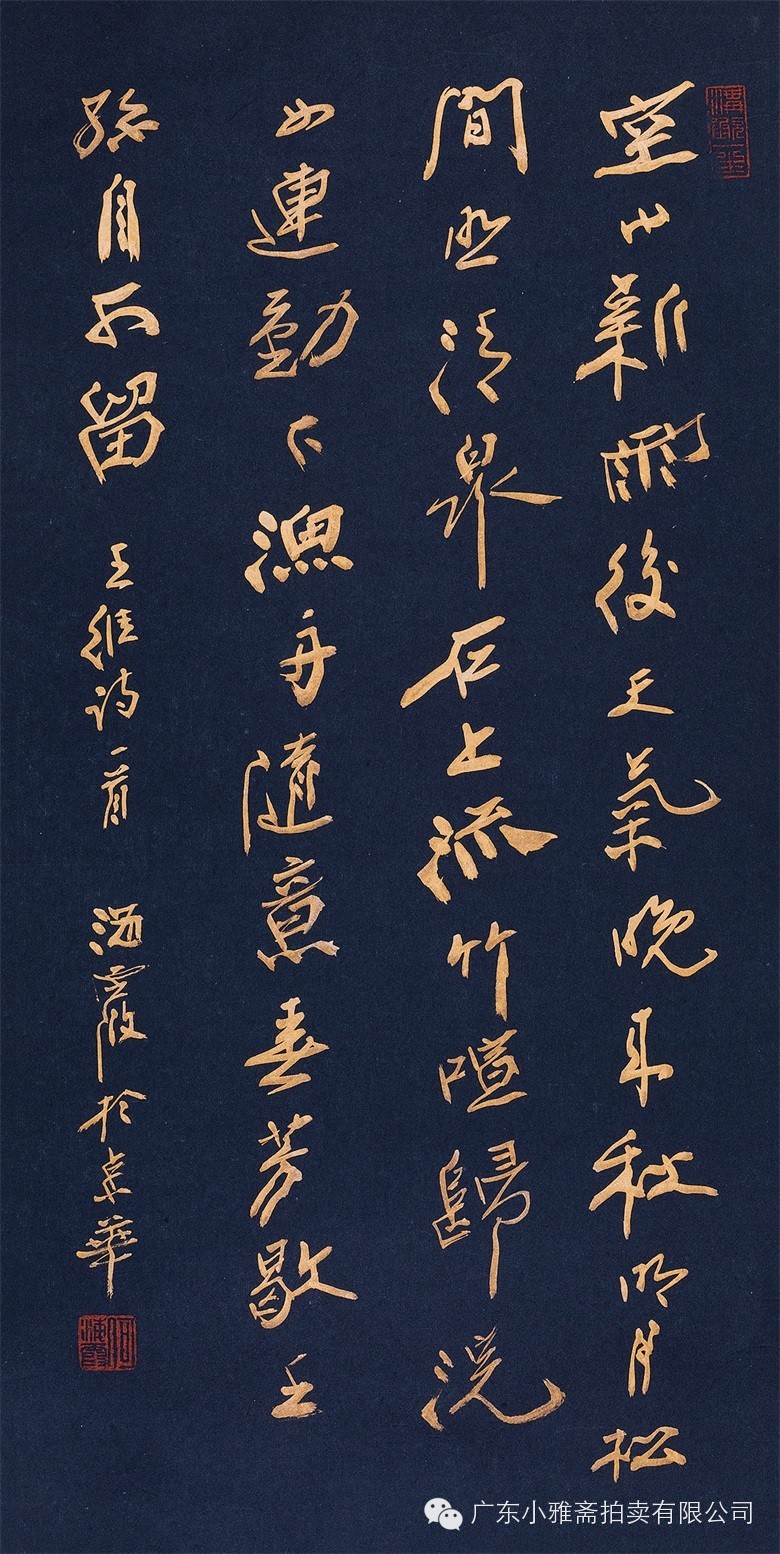 空山新雨後天氣晚来秋明月松
間照清泉石上流竹喧歸浣
女連動下漁舟隨意春芳歇王
孫自可留 王維詩一首 海霞於京華
何海霞
广东小雅斋拍卖有限公司